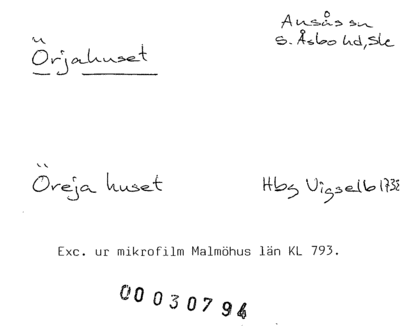 Örjahuset
Ausås sn
S. Åsbo hd, Sk
Öreja huset
Hbg Vigselb 1738
Exc. ur mikrofilm Malmöhus län KL 793.
00030794